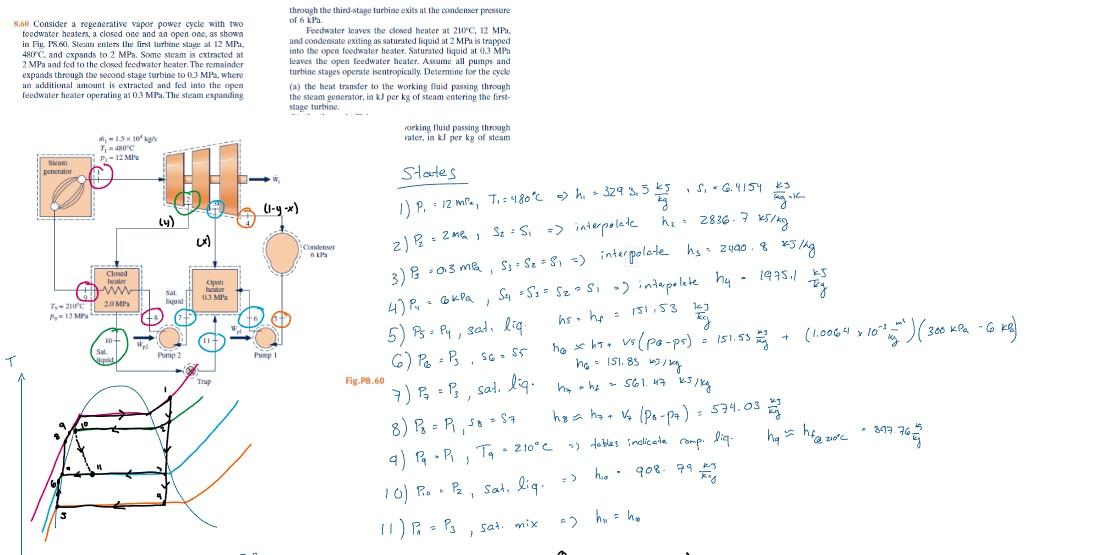 8.60 Consider a regenerative vapor power cycle with two
feedwater heaters, a closed one and an open one, as shown
in Fig. P8.60. Steam enters the first turbine stage at 12 MPa,
480°C, and expands to 2 MPa. Some steam is extracted at
2 MPa and fed to the closed feedwater heater. The remainder
expands through the second-stage turbine to 0.3 MPa, where
an additional amount is extracted and fed into the open
feedwater heater operating at 0.3 MPa. The steam expanding
through the third-stage turbine exits at the condenser pressure
of 6 kPa.
Feedwater leaves the closed heater at 210°C, 12 MPa,
and condensate exiting as saturated liquid at 2 MPa is trapped
into the open feedwater heater. Saturated liquid at 0.3 MPa
leaves the open feedwater heater. Assume all pumps and
turbine stages operate isentropically. Determine for the cycle
(a) the heat transfer to the working fluid passing through
the steam generator, in kJ per kg of steam entering the first-
stage turbine.
orking fluid passing through
rater, in kJ per kg of steam
ṁ₁ = 1.5 × 10⁴ kg/s
T₁ = 480°C
P₁ = 12 MPa
Steam
generator
1
2
3
4
Ẇt
(y)
(x)
(1-y-x)
Condenser
6 kPa
Closed
heater
2.0 MPa
Sat.
liquid
Open
heater
0.3 MPa
9
T₉ = 210°C
p₉ = 12 MPa
8
7
6
5
10
Sat.
liquid
Ẇp2
Pump 2
11
Ẇp1
Pump 1
Trap
Fig.P8.60
T
States
1) P₁ = 12 mPa, T₁ = 480°C => h₁ = 3293.5 kJ/kg, S₁ = 6.4154 kJ/kg·K
2) P₂ = 2mPa, S₂ = S₁ => interpolate h₂ = 2836.7 kJ/kg
3) P₃ = 0.3 mPa, S₃ = S₂ = S₁ => interpolate h₃ = 2490.8 kJ/kg
4) P₄ = 6kPa, S₄ = S₃ = S₂ = S₁ => interpolate h₄ = 1975.1 kJ/kg
5) P₅ = P₄, sat. liq. h₅ = hf = 151.53 kJ/kg
6) P₆ = P₃, S₆ = S₅ h₆ ≈ h₅ + v₅(P₆-P₅) = 151.53 kJ/kg + (1.0064 × 10⁻³ m³/kg)(300 kPa - 6 kPa)
h₆ = 151.83 kJ/kg
7) P₇ = P₃, sat. liq. h₇ = hf = 561.47 kJ/kg
8) P₈ = P₁, S₈ = S₇ h₈ ≈ h₇ + v₇ (P₈-P₇) = 574.03 kJ/kg
9) P₉ = P₁, T₉ = 210°C => tables indicate comp. liq. h₉ ≈ hf@210°C = 897.76 kJ/kg
10) P₁₀ = P₂, sat. liq. => h₁₀ = 908.79 kJ/kg
11) P₁₁ = P₃, sat. mix => h₁₁ = h₁₀